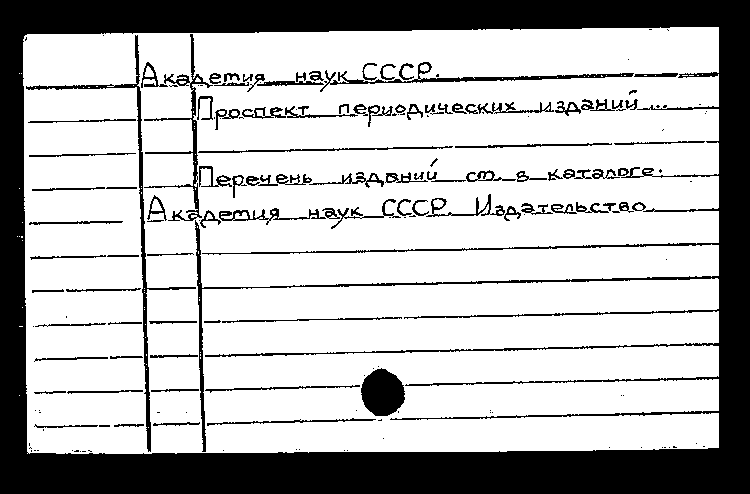 Академия наук СССР.
Проспект периодических изданий...
Перечень изданий см. в каталоге:
Академия наук СССР. Издательство.